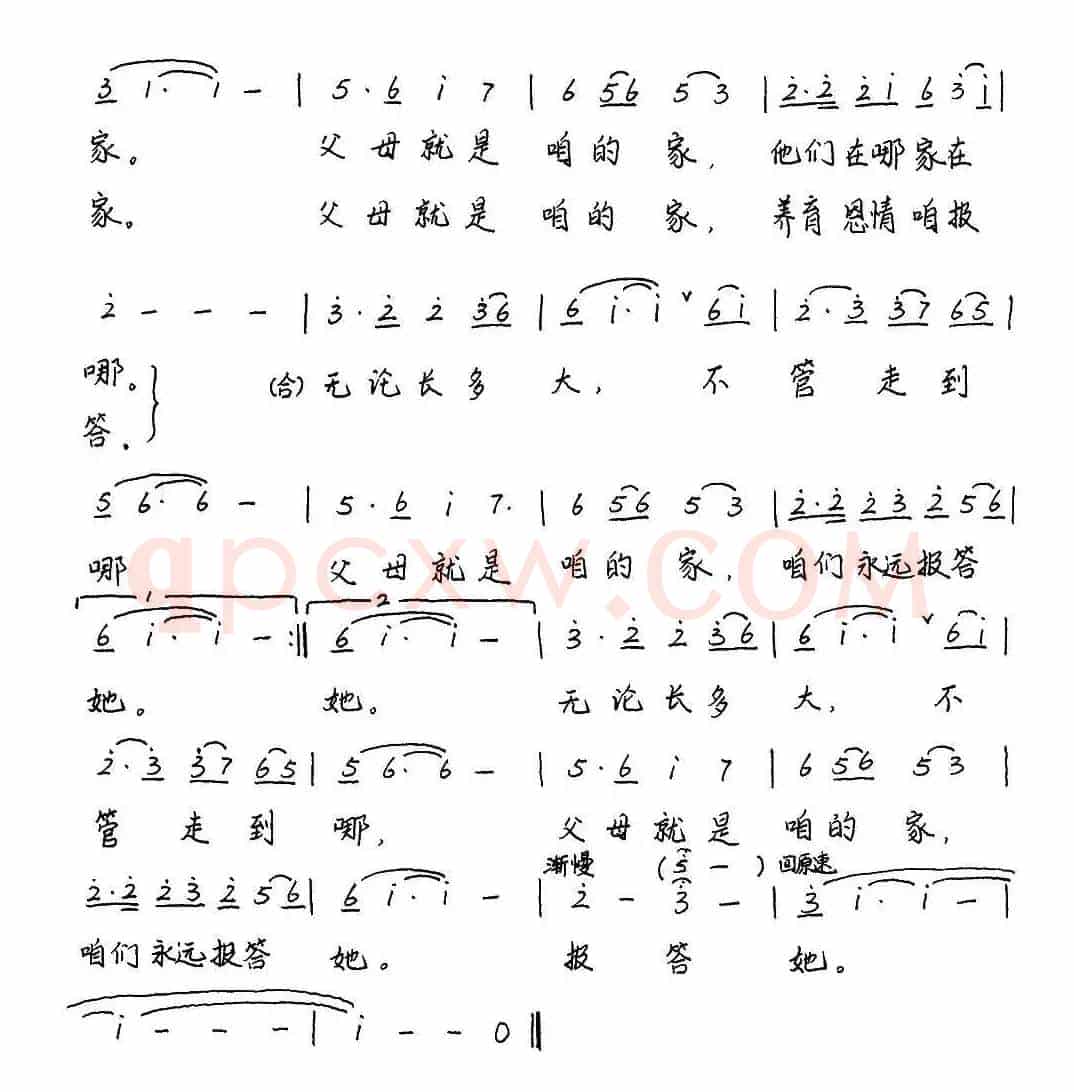 3 i· i - | 5· 6 i 7 | 6 56 5 3 | 2·2 2i 6 3 i |
家。 父母就是 咱的 家， 他们在哪家在
家。 父母就是 咱的 家， 养育恩情咱报
2 - - - | 3· 2 2 36 | 6 i· i ∨ 6i | 2· 3 37 65 |
哪。 (合)无论长多 大， 不 管 走到
答.
5 6· 6 - | 5· 6 i 7. | 6 56 5 3 | 2·2 23 2 5 6 |
哪 父母就是 咱的 家， 咱们永远报答
qpcxw.com
1 2
6 i· i - :|| 6 i· i - | 3· 2 2 36 | 6 i· i ∨ 6i |
她。 她。 无论长多 大， 不
2· 3 37 65 | 5 6· 6 - | 5· 6 i 7 | 6 56 5 3 |
管 走到 哪， 父母就是 咱的 家，
渐慢 (5 - ) 回原速
2·2 23 2 5 6 | 6 i· i - | 2 - 3 - | 3 i· i - |
咱们永远报答 她。 报 答 她。
i - - - | i - - 0 ||